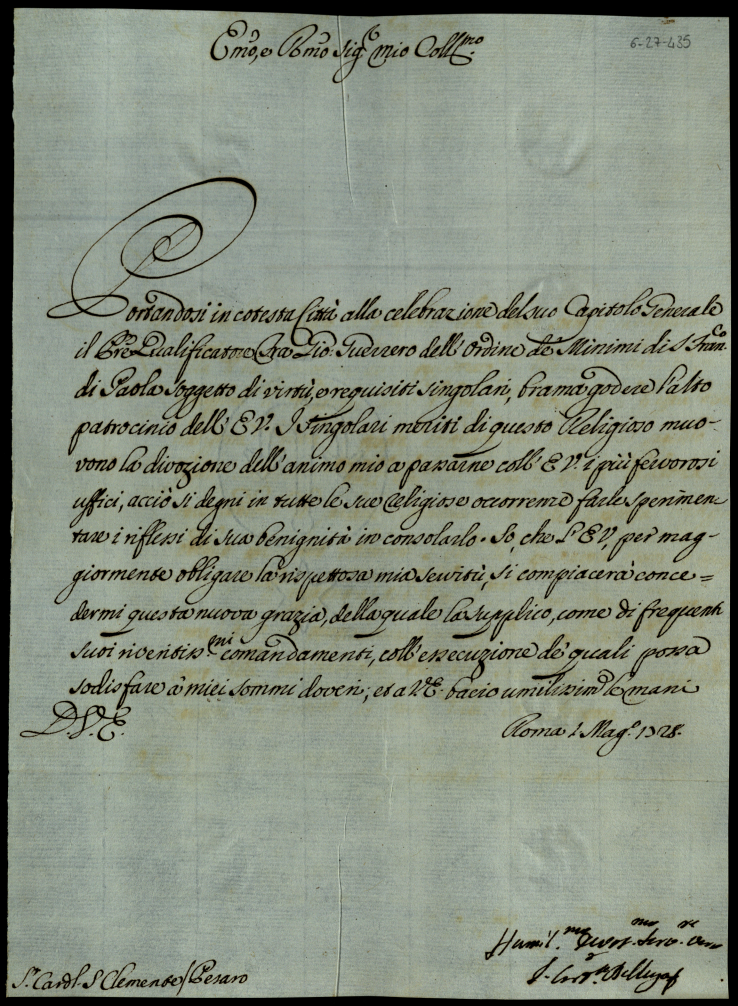 Emõ, e Rmõ Sig.e mio Coll.mo
6-27-435
Portandosi in cotesta Città alla celebrazione del suo Capitolo Generale
il Pre Qualificatore Fra Gio: Guerrero dell'Ordine de' Minimi di S. Fran.co
di Paola soggetto di virtù, e requisiti singolari, brama godere l'alto
patrocinio dell'E.V. I singolari meriti di questo Religioso muo-
vono la divozione dell'animo mio a passarne coll'E.V. i più fervorosi
uffici, acciò si degni in tutte le sue Religiose occorrenze farle sperimen
tare i riflessi di sua benignità in consolarlo. So, che l'E.V., per mag-
giormente obligare la rispettosa mia servitù, si compiacerà conce=
dermi questa nuova grazia, della quale la supplico, come di frequenti
suoi riveritiss.mi comandamenti, coll'essecuzione de' quali possa
sodisfare a' miei sommi doveri, et a V.E. bacio umilissim.e le mani
D.V.E.
Roma 1 Mag.o 1728.
Humil.mo Divot.mo Serv.re
S.r Card.l S Clemente / Pesaro